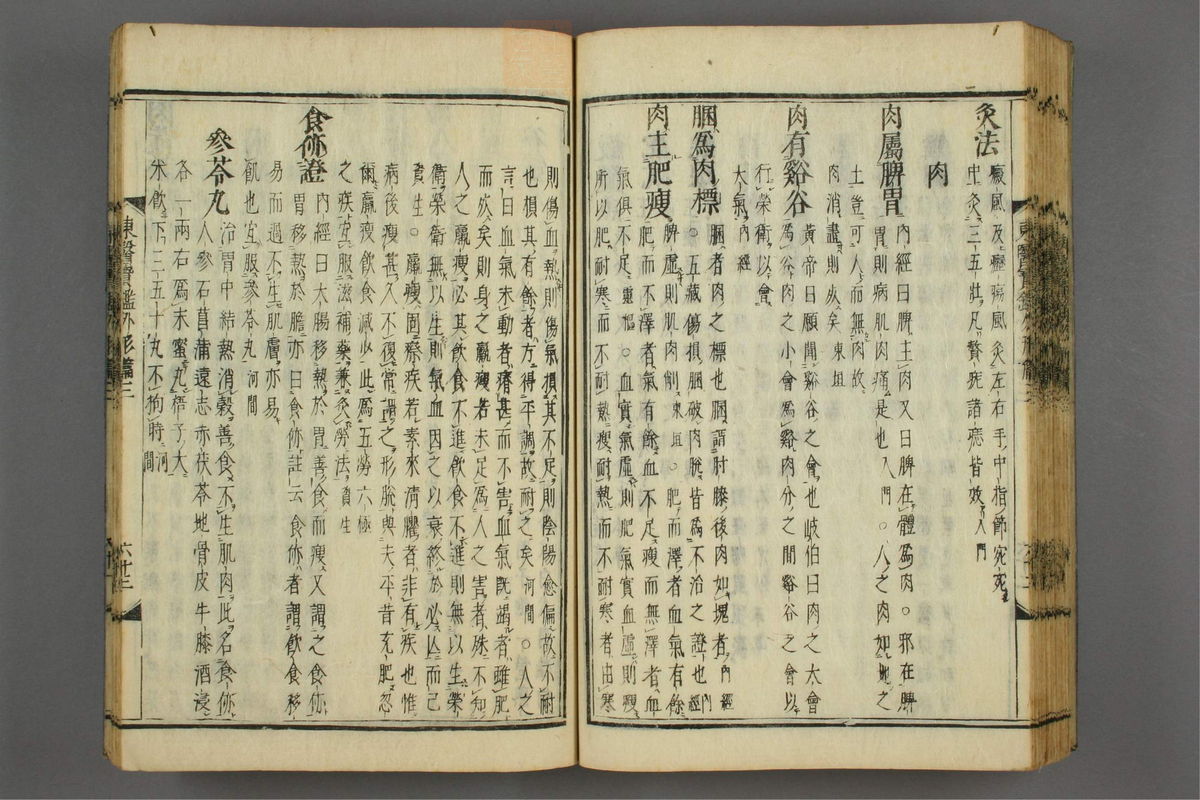 灸法 癜風及癧瘍風灸左右手中指節宛宛
中灸三五壯凡贅疣諸痣皆效入門
肉
肉屬脾胃 內經曰脾主肉又曰脾在體爲肉○邪在脾
胃則病肌肉痛是也入門○人之肉如地之
土豈可人而無肉故
肉消盡則死矣東垣
肉有谿谷 黃帝曰願聞谿谷之會也岐伯曰肉之大會
爲谷肉之小會爲谿肉分之間谿谷之會以
行榮衛以會
大氣內經
䐃爲肉標 䐃者肉之標也䐃謂肘膝後肉如塊者內經
○五藏傷損䐃破肉脫皆爲不治之證也內經
脾虛則肌肉削東垣○肥而澤者血氣有餘
肉主肥瘦 肥而不澤者氣有餘血不足瘦而無澤者血
氣俱不足靈樞○血實氣虛則肥氣實血虛則瘦
所以肥耐寒而不耐熱瘦耐熱而不耐寒者由寒
則傷血熱則傷氣損其不足則陰陽愈偏故不耐
也損其有餘者方得平調故耐之矣河間○人之
言曰血氣未動者瘠甚而不害血氣旣竭者雖肥
而死矣則身之羸瘦若未足爲人之害者殊不知
人之羸瘦必其飮食不進飮食不進則無以生榮
衛榮衛無以生則氣血因之以衰終於必亾而已
資生○羸瘦固瘵疾若素來清臞者非有疾也惟
病後瘦甚久不復常謂之形脫與夫平昔充肥忽
爾羸瘦飮食減少此爲五勞六極
之疾宜服滋補藥兼灸勞法資生
食㑊證 內經曰大腸移熱於胃善食而瘦又謂之食㑊
胃移熱於膽亦曰食㑊註云食㑊者謂飮食移
易而過不生肌膚亦易
飢也宜服參苓丸河間
參苓丸 治胃中結熱消穀善食不生肌肉此名食㑊
人參石菖蒲遠志赤茯苓地骨皮牛膝酒浸
各一兩右爲末蜜丸梧子大
米飮下三五十丸不拘時河間
東醫寶鑑外形篇三
六十三